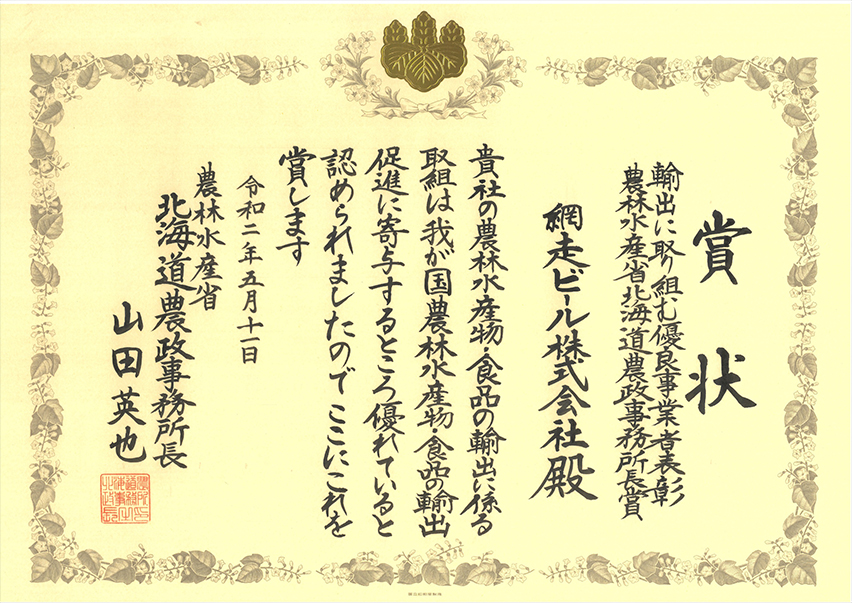 賞状
輸出に取り組む優良事業者表彰
農林水産省北海道農政事務所長賞
網走ビール株式会社殿
貴社の農林水産物・食品の輸出に係る
取組は我が国農林水産物・食品の輸出
促進に寄与するところ優れていると
認められましたのでここにこれを
賞します
令和二年五月十一日
農林水産省
北海道農政事務所長
山田英也